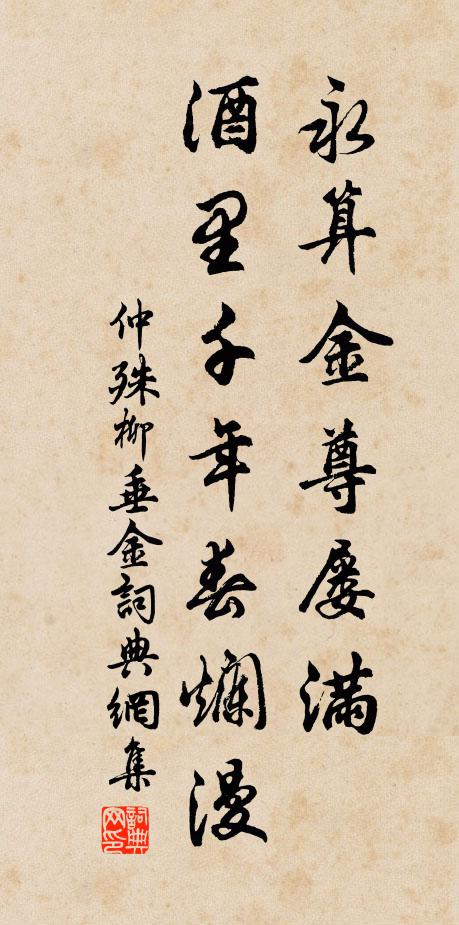 永算金尊屡滿
酒里千年春爛漫
仲殊柳垂金詞典網集
詞典网印